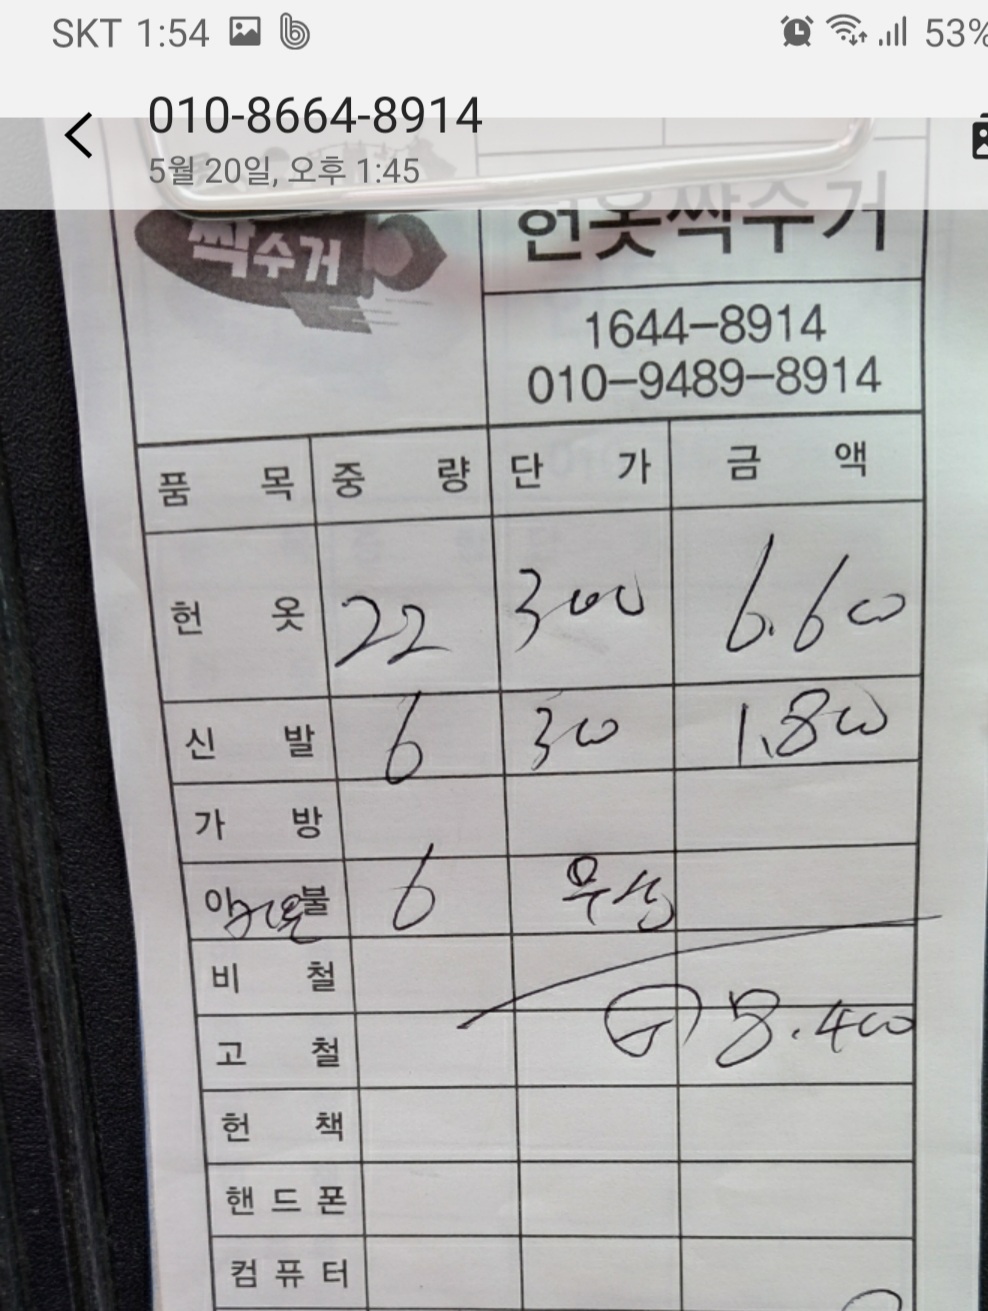 SKT 1:54 53%
010-8664-8914
5월 20일, 오후 1:45
싹수거
헌옷싹수거
1644-8914
010-9489-8914
품 목 중 량 단 가 금 액
헌 옷 22 300 6.600
신 발 6 300 1.800
가 방
이 불 6 무상
비 철
고 철 8.400
헌 책
핸드폰
컴퓨터